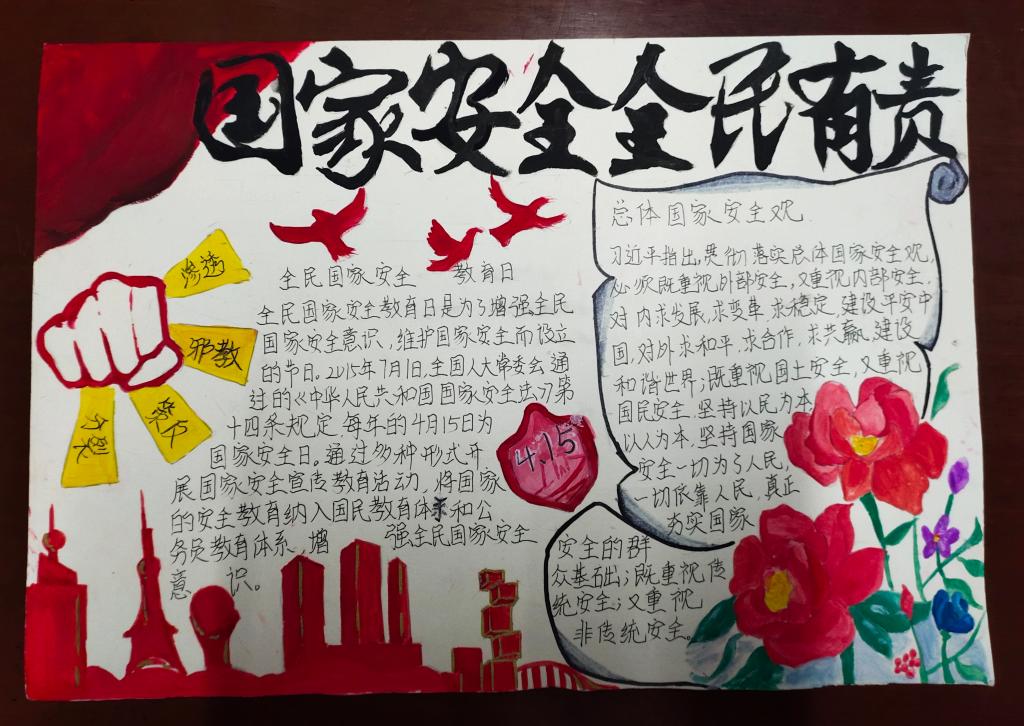 国家安全全民有责
渗透
邪教
策反
分裂
全民国家安全 教育日
全民国家安全教育日是为了增强全民
国家安全意识，维护国家安全而设立
的节日。2015年7月1日，全国人大常委会通
过的《中华人民共和国国家安全法》第
十四条规定每年的4月15日为
国家安全日。通过多种形式开
展国家安全宣传教育活动，将国家
的安全教育纳入国民教育体系和公
务员教育体系，增 强全民国家安全
意 识。
4.15
总体国家安全观
习近平指出，贯彻落实总体国家安全观，
必须既重视外部安全，又重视内部安全，
对内求发展，求变革，求稳定，建设平安中
国，对外求和平，求合作，求共赢，建设
和谐世界；既重视国土安全，又重视
国民安全，坚持以民为本
以人为本，坚持国家
安全一切为了人民，
一切依靠人民，真正
夯实国家
安全的群
众基础；既重视传
统安全；又重视
非传统安全。